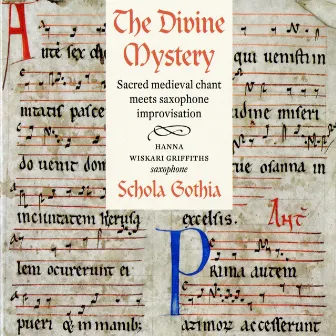 The Divine
Mystery
Sacred medieval chant
meets saxophone
improvisation
HANNA
WISKARI GRIFFITHS
saxophone
Schola Gothia
Ante sex
qui uenistı in
itatis pasce
udine miseri
do uenit dom
osanna in
inciuitatem
excelsis.
Ant
lem ocurerunt ei
Prima autem
pueri
in manib;
azimor accesserunt